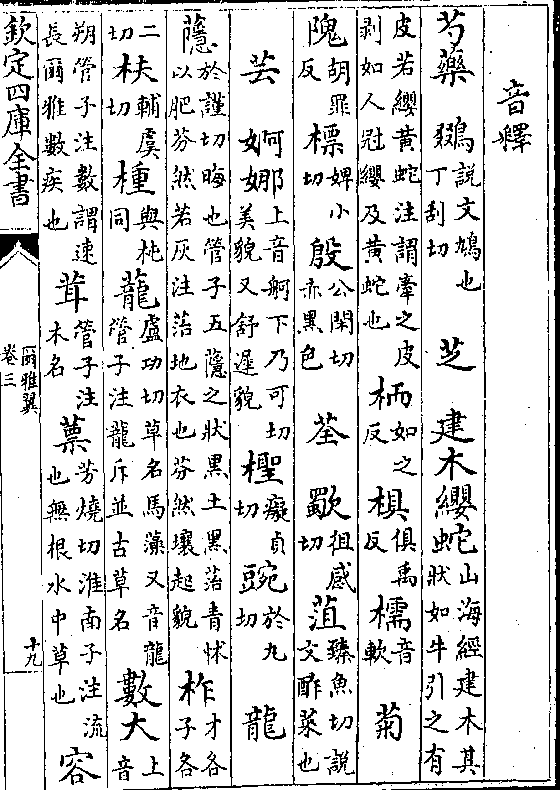 音釋
芍藥 鵽說文鳩也丁刮切 芝 建木纓蛇山海經建木其狀如牛引之有
皮若纓黃蛇注謂牽之皮剥如人冠纓及黃蛇也 栭如之反 椇俱禹反 檽音軟 菊
隗胡罪反 標婢小切 殷公閑切赤黑色 荃 歜徂感切 菹臻魚切說文酢菜也
芸 妸娜上音舸下乃可切美貌又舒遲貌 檉癡貞切 豌於九切 龍
蘟於謹切晦也管子五蘟之狀黑土黑落青怵以肥芬然若灰注落地衣也芬然壤起貌 柞才各子各
二切 枎輔虞切 橦與杶同 蘢盧功切草名馬藻又音龍管子注龍斥並古草名 數大上音
朔管子注數謂速長爾雅數疾也 茸管子注木名 薸芳燒切淮南子注流也無根水中草也 容
欽定四庫全書
爾雅翼
卷三
十九